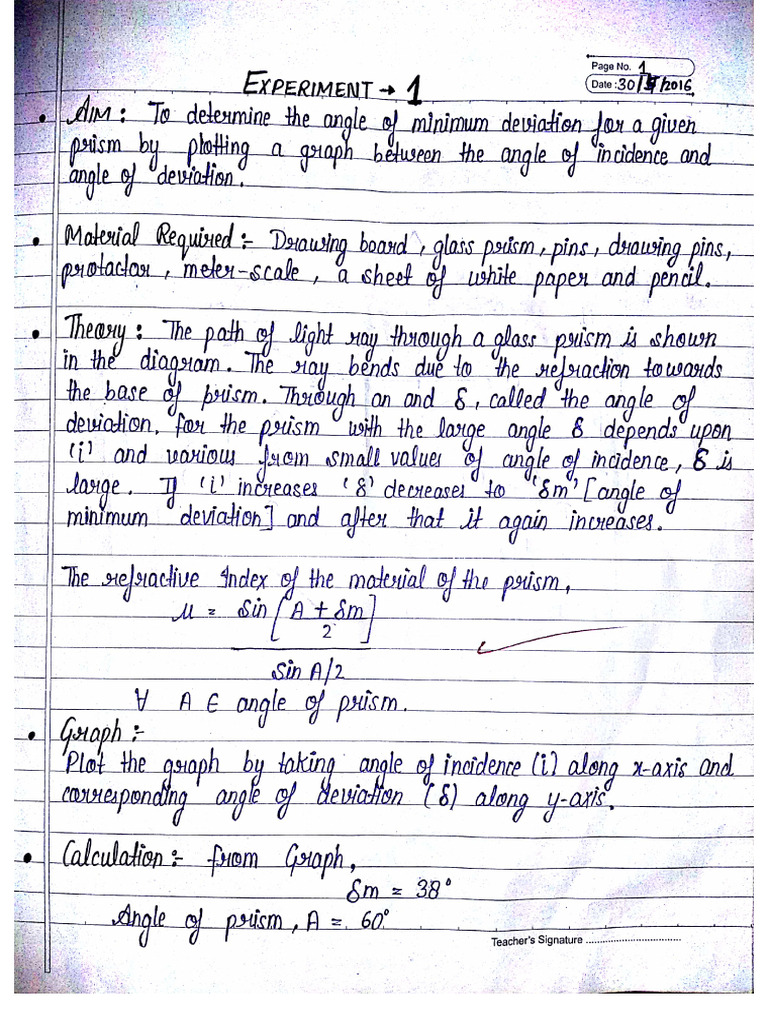 Page No. 1
EXPERIMENT → 1
Date : 30/5/2016
• AIM : To determine the angle of minimum deviation for a given
prism by plotting a graph between the angle of incidence and
angle of deviation.
• Material Required :- Drawing board, glass prism, pins, drawing pins,
protactor, meter-scale, a sheet of white paper and pencil.
• Theory : The path of light ray through a glass prism is shown
in the diagram. The ray bends due to the refraction towards
the base of prism. Through an and δ, called the angle of
deviation. for the prism with the large angle δ depends upon
'i' and various from small values of angle of incidence, δ is
large. If 'i' increases 'δ' decreases to 'δm' [angle of
minimum deviation] and after that it again increases.
The refractive Index of the material of the prism,
μ = Sin [A + δm / 2]
Sin A/2
∀ A ∈ angle of prism.
• Graph :-
Plot the graph by taking angle of incidence (i) along x-axis and
corresponding angle of deviation (δ) along y-axis.
• Calculation :- from Graph,
δm = 38°
Angle of prism, A = 60°
Teacher's Signature ................................